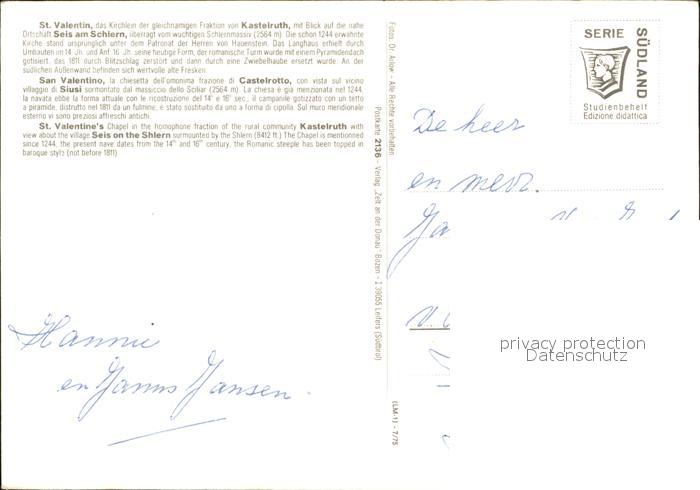 St. Valentin, das Kirchlein der gleichnamigen Fraktion von Kastelruth, mit Blick auf die nahe
Ortschaft Seis am Schlern, überragt vom wuchtigen Schlernmassiv (2564 m). Die schon 1244 erwähnte
Kirche stand ursprünglich unter dem Patronat der Herren von Hauenstein. Das Langhaus erhielt durch
Umbauten im 14. Jh. und Anf. 16. Jh. seine heutige Form, der romanische Turm wurde mit einem Pyramidendach
gotisiert, das 1811 durch Blitzschlag zerstört und dann durch eine Zwiebelhaube ersetzt wurde. An der
südlichen Außenwand befinden sich wertvolle alte Fresken.
San Valentino, la chiesetta dell'omonima frazione di Castelrotto, con vista sul vicino
villaggio di Siusi sormontato dal massiccio dello Sciliar (2564 m). La chiesa è già menzionata nel 1244,
la navata ebbe la forma attuale con le ricostruzione del 14° e 16° sec.; il campanile gotizzato con un tetto
a piramide, distrutto nel 1811 da un fulmine, è stato sostituito da uno a forma di cipolla. Sul muro meridionale
esterno vi sono preziosi affreschi antichi.
St. Valentine's Chapel in the homophone fraction of the rural community Kastelruth with
view about the village Seis on the Shlern surmounted by the Shlern (8412 ft.) The Chapel is mentioned
since 1244, the present nave dates from the 14th and 16th century, the Romanic steeple has been topped in
baroque style (not before 1811)
Fotos: Dr. - Alle Rechte vorbehalten
Postkarte 2136 - Verlag „Zeit an der Donau" Bozen - I 39055 Leifers (Südtirol)
(LM-1) - 7/75
SERIE
SÜDLAND
Studienbehelf
Edizione didattica
De heer
en mevr.
Ja
v.
privacy protection
Datenschutz
Hannie
en Jansen